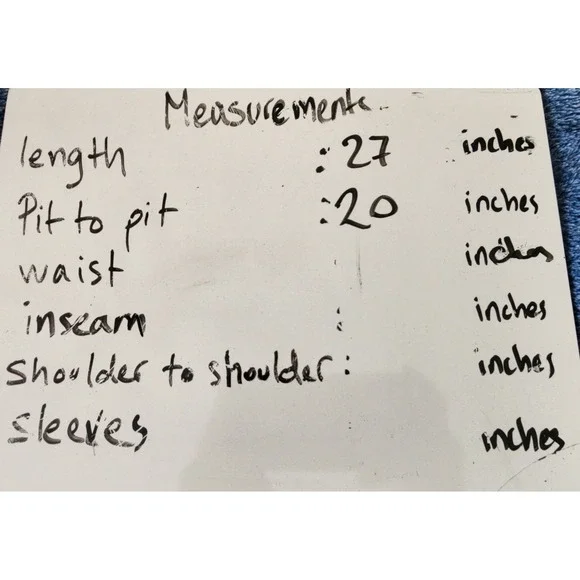 Measurements
length : 27 inches
Pit to pit : 20 inches
waist inches
inseam : inches
shoulder to shoulder : inches
sleeves inches